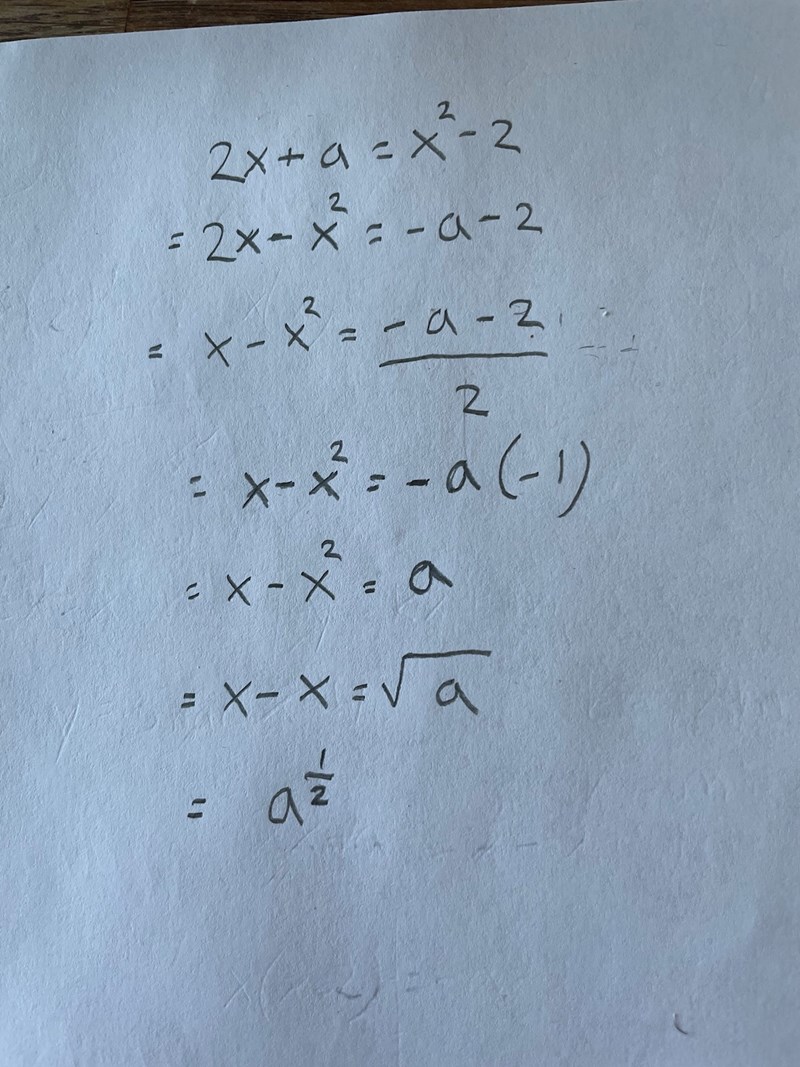 2x + a = x² - 2
= 2x - x² = -a - 2
= x - x² = (-a - 2)/2
= x - x² = -a(-1)
= x - x² = a
= x - x = √a
= a^(1/2)